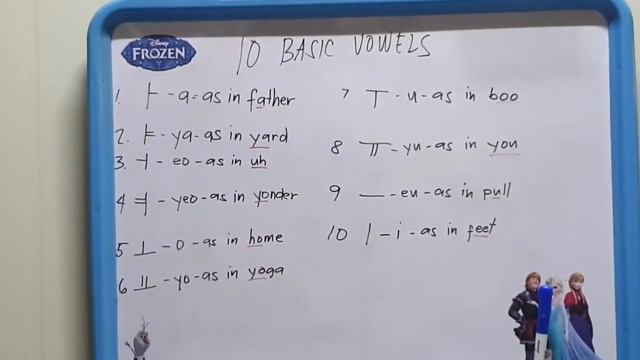 Disney
FROZEN
10 BASIC VOWELS
1. ㅏ - a - as in father
2. ㅑ - ya - as in yard
3. ㅓ - eo - as in uh
4 ㅕ - yeo - as in yonder
5 ㅗ - o - as in home
6 ㅛ - yo - as in yoga
7 ㅜ - u - as in boo
8 ㅠ - yu - as in you
9 ㅡ - eu - as in pull
10 ㅣ - i - as in feet